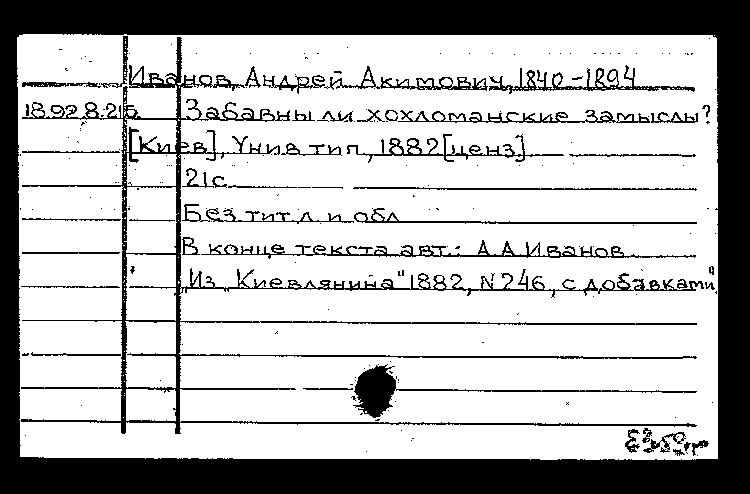 Иванов, Андрей Акимович, 1840-1894
18.92.8.215. Забавны ли хохломанские замыслы?
[Киев], Унив тип, 1882 [ценз]
21с
Без тит л и обл
В конце текста авт.: А А Иванов
"Из "Киевлянина" 1882, N 246, с добавками"